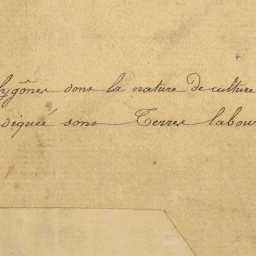 lygônes dons la nature De culture
diquée sons Terres labou